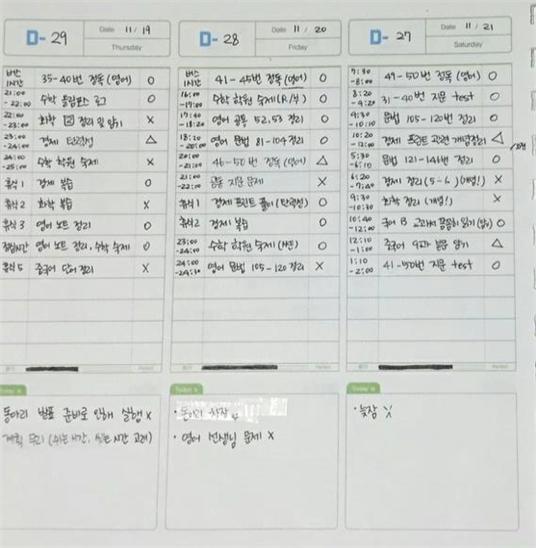 D-29
Date 11 / 19
Thursday
버스 1시간 35-40번 정독 (영어) O
21:00 -22:00 수학 플립포스 로그 O
22:00 -23:00 화학 정리 및 암기 X
23:00 -24:00 경제 탄력성 △
24:00 -25:00 수학 학원 숙제 X
휴식 1 경제 복습 O
휴식 2 화학 복습 X
휴식 3 영어 노트 정리 O
점심시간 영어 노트 정리, 수학 숙제 O
휴식 5 중국어 단어 정리 X
동아리 발표 준비로 인해 실행 X
계획 무리 (쉬는시간, 시간 고려)
D-28
Date 11 / 20
Friday
버스 1시간 41-45번 정독 (영어) O
16:00 -17:00 수학 학원 숙제 (R/부) O
17:40 -18:20 영어 공통 52, 53 정리 O
18:20 -20:00 영어 문법 81-104 정리 O
20:00 -21:00 46-50번 정독 (영어) △
21:00 -22:00 공통 지문 문제 X
휴식 1 경제 프린트 풀이 (탄력성) O
휴식 2 경제 복습 O
23:00 -24:00 수학 학원 숙제 O
24:00 -24:30 영어 문법 105-120 정리 X
Today's
· 동아리
· 영어 선생님 문제 X
D-27
Date 11 / 21
Saturday
7:30 -8:00 49-50번 정독 (영어) O
8:20 -9:20 31-40번 지문 test O
9:30 -10:10 문법 105-120번 정리 O
10:20 -12:00 경제 프린트 관련 개념정리 △
5:30 -6:10 문법 121-146번 정리 O
6:20 -7:40 경제 정리 (5-6) (개념!) X
9:30 -10:30 화학 정리 (개념!) X
10:40 -12:00 국어 B 교과서 꼼꼼히 읽기 O
12:10 -1:00 중국어 9과 본문 읽기 △
1:10 -2:00 41-50번 지문 test O
· 늦잠 X